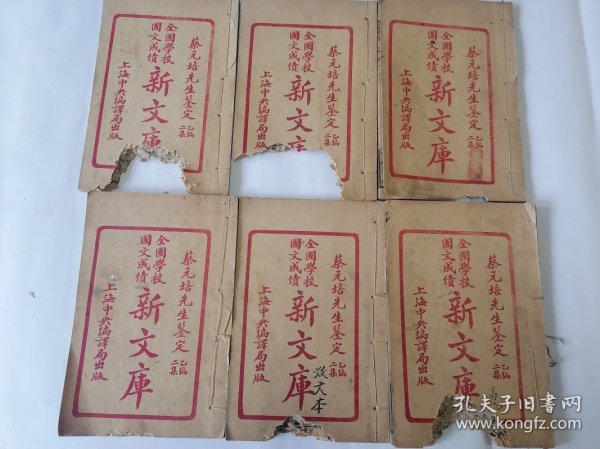 蔡元培先生鍳定
乙編
二集
全國學校
國文成績
新文庫
上海中央編譯局出版
蔡元培先生鍳定
乙編
二集
全國學校
國文成績
新文庫
上海中央編譯局出版
蔡元培先生鍳定
乙編
二集
全國學校
國文成績
新文庫
上海中央編譯局出版
蔡元培先生鍳定
乙編
二集
全國學校
國文成績
新文庫
上海中央編譯局出版
蔡元培先生鍳定
乙編
二集
全國學校
國文成績
新文庫
上海中央編譯局出版
蔡元培先生鍳定
乙編
二集
全國學校
國文成績
新文庫
上海中央編譯局出版
孔夫子旧书网